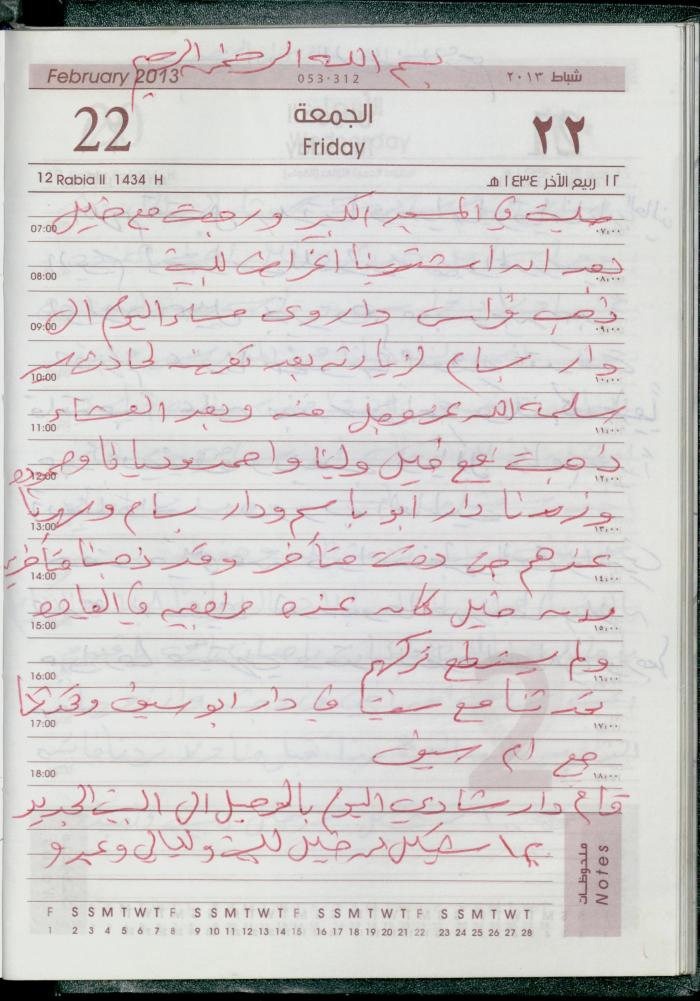 بسم الله الرحمن الرحيم
February 2013 053-312 شباط ٢٠١٣
22 الجمعة ٢٢
Friday
12 Rabia II 1434 H ١٢ ربيع الآخر ١٤٣٤ هـ
صليت في المسجد الكبير ورجعت مع خليل
07:00 ٠٧:٠٠
بعد ان اشترينا اغراض للبيت
08:00 ٠٨:٠٠
ذهب فراس دار وى مساء اليوم الى
09:00 ٠٩:٠٠
دار بسام لزيارته بعد لحادث
10:00 ١٠:٠٠
سلمه الله عز وجل منه وبعد العشاء
11:00 ١١:٠٠
ذهبت مع خليل ولينا واحمد
12:00 ١٢:٠٠
وزرنا دار ابو باسم ودار بسام وسهرنا
13:00 ١٣:٠٠
عندهم حتى وقت متأخر وقد ذهبنا متأخرين
14:00 ١٤:٠٠
خليل كان عنده
15:00 ١٥:٠٠
ولم يستطع تركهم
16:00 ١٦:٠٠
تحدثنا مع في دار ابو سيف وتحدثنا
17:00 ١٧:٠٠
مع ام سيف
18:00 ١٨:٠٠
قام دار شادي اليوم بالرحيل الى البيت الجديد
خليل للبيت وليالي
ملحوظات Notes
F S S M T W T F S S M T W T F S S M T W T F S S M T W T
1 2 3 4 5 6 7 8 9 10 11 12 13 14 15 16 17 18 19 20 21 22 23 24 25 26 27 28